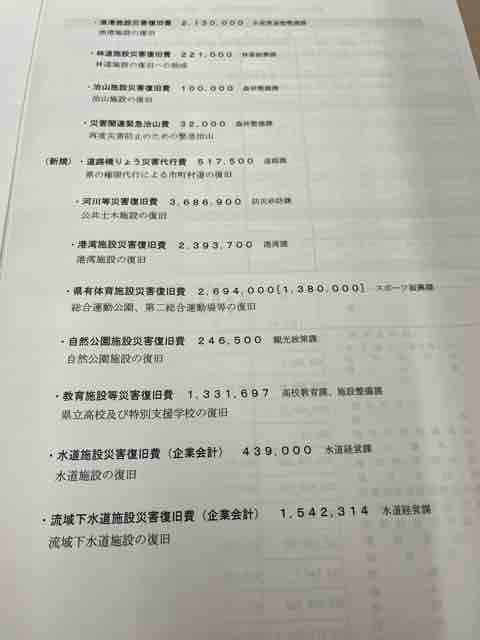 ・漁港施設災害復旧費 2,130,000 水産業基盤整備課
漁港施設の復旧
・林道施設災害復旧費 221,000 林業振興課
林道施設の復旧への助成
・治山施設災害復旧費 100,000 森林整備課
治山施設の復旧
・災害関連緊急治山費 32,000 森林整備課
再度災害防止のための緊急治山
(新規)・道路橋りょう災害代行費 517,500 道路課
県の権限代行による市町村道の復旧
・河川等災害復旧費 3,686,900 防災砂防課
公共土木施設の復旧
・港湾施設災害復旧費 2,393,700 港湾課
港湾施設の復旧
・県有体育施設災害復旧費 2,694,000[1,380,000] スポーツ振興課
総合運動公園、第二総合運動場等の復旧
・自然公園施設災害復旧費 246,500 観光政策課
自然公園施設の復旧
・教育施設等災害復旧費 1,331,697 高校教育課、施設整備課
県立高校及び特別支援学校の復旧
・水道施設災害復旧費(企業会計) 439,000 水道経営課
水道施設の復旧
・流域下水道施設災害復旧費(企業会計) 1,542,314 水道経営課
流域下水道施設の復旧